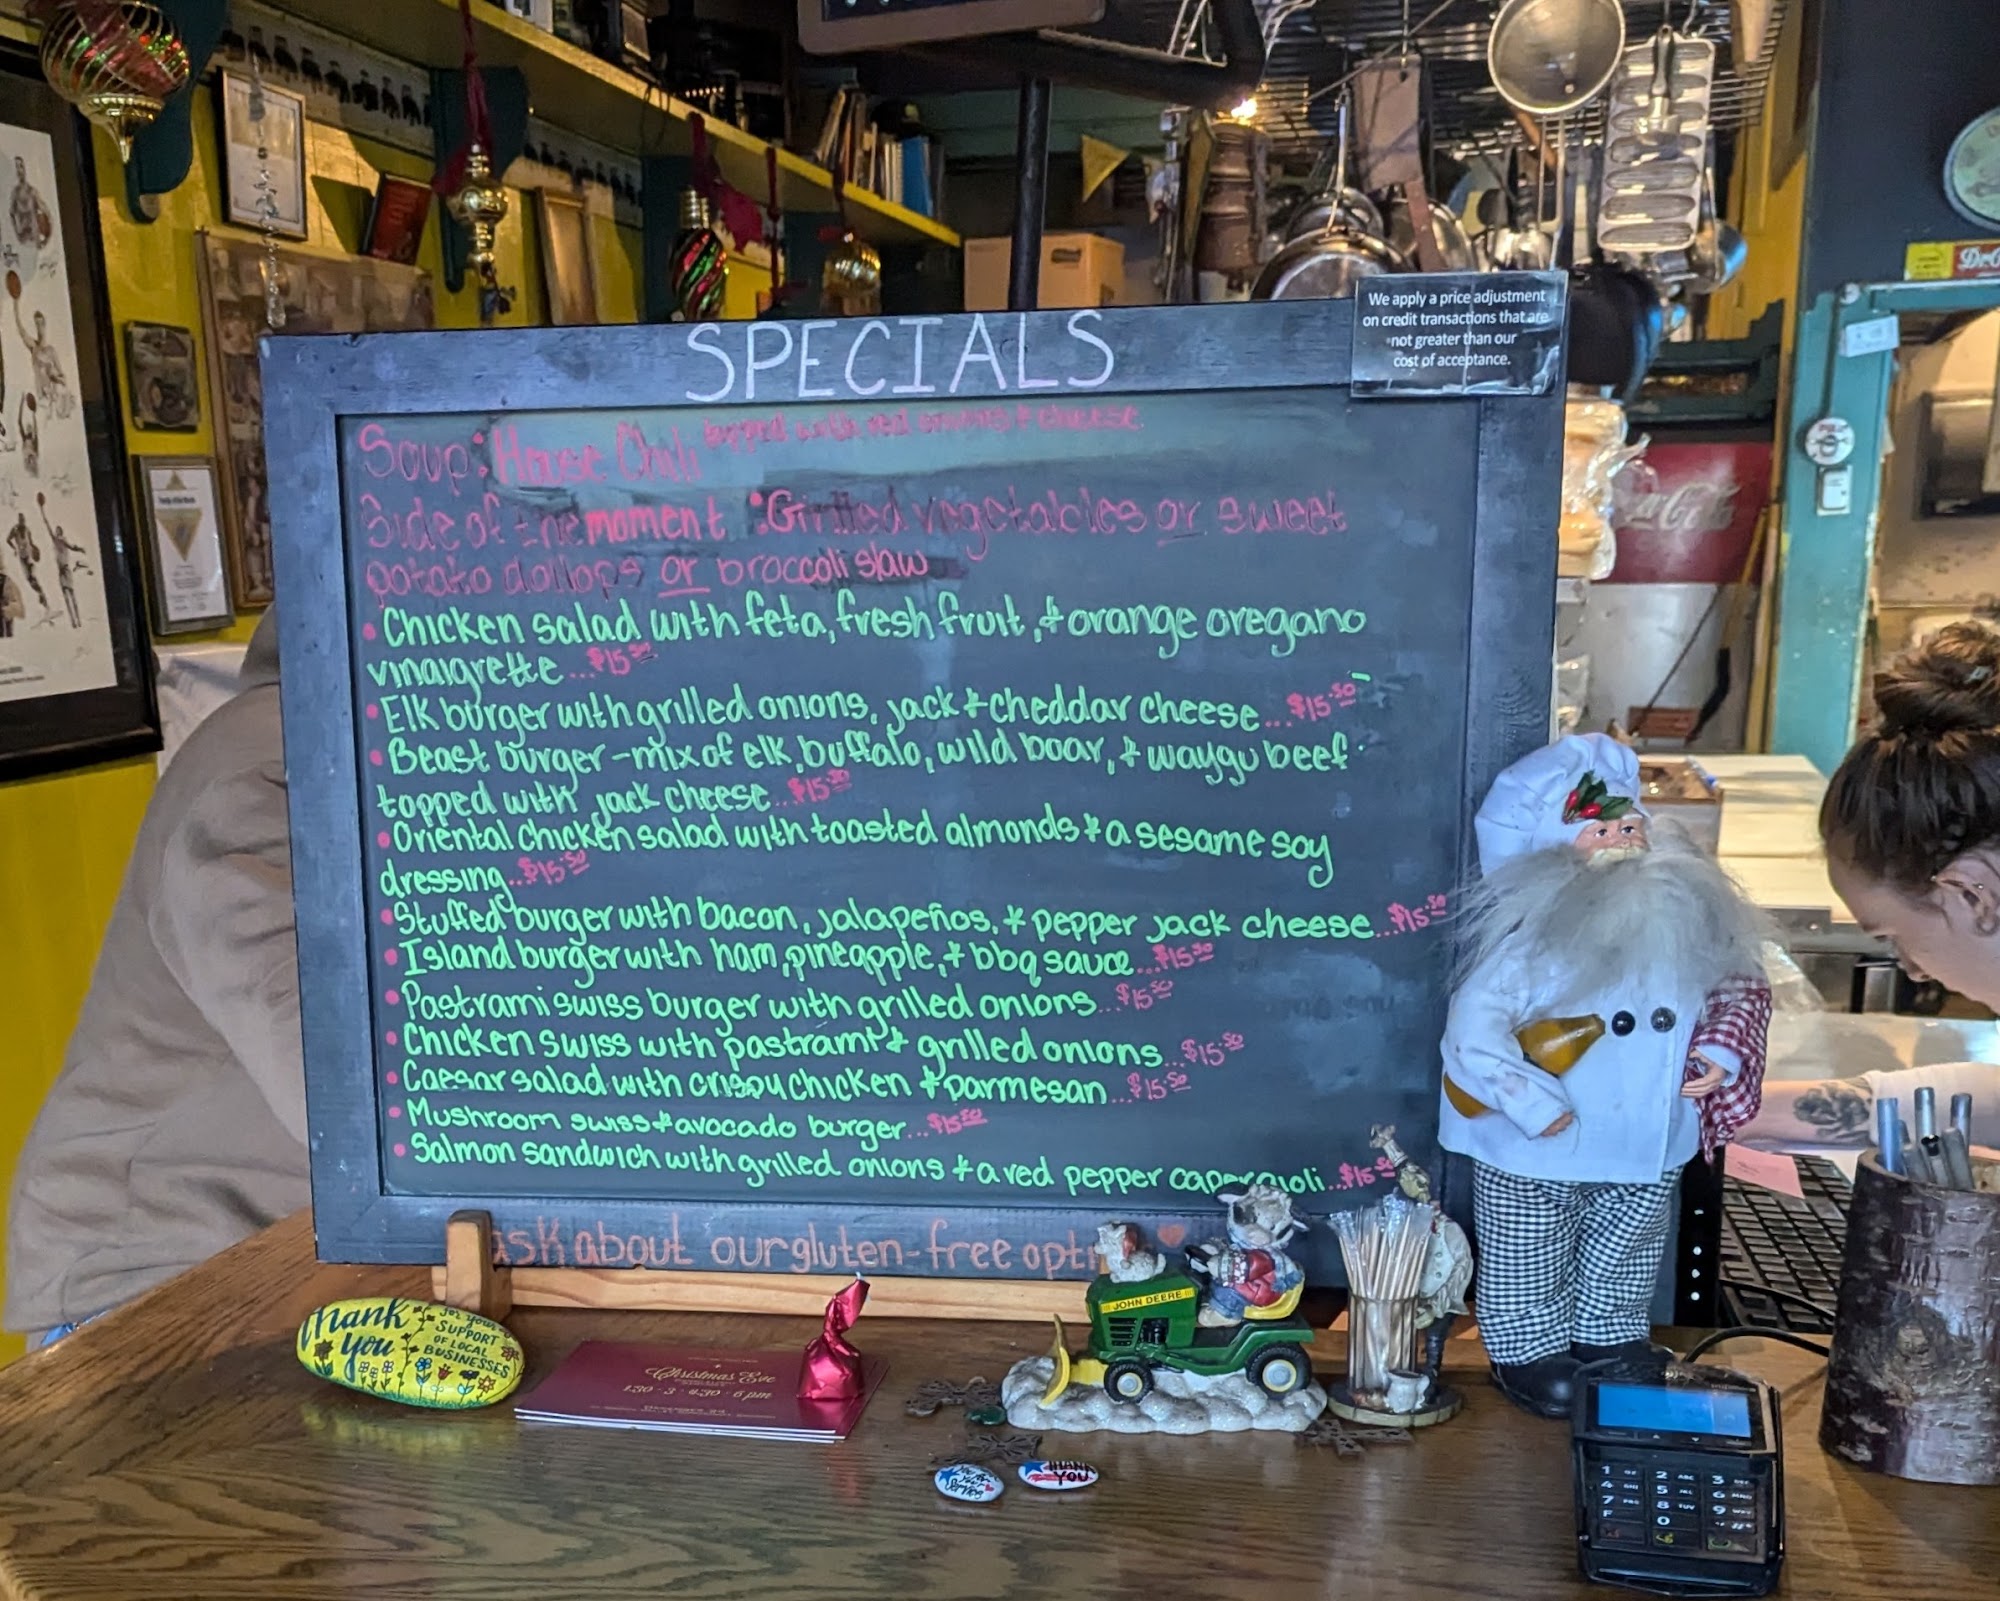 SPECIALS
We apply a price adjustment
on credit transactions that are
not greater than our
cost of acceptance.
Soup: House Chili topped with red onions & cheese
Side of the moment : Grilled vegetables or sweet
potato dollops or broccoli slaw
• Chicken salad with feta, fresh fruit, & orange oregano
vinaigrette...$15.50
• Elk burger with grilled onions, jack & cheddar cheese...$15.50
• Beast burger - mix of elk, buffalo, wild boar, & waygu beef
topped with jack cheese...$15.50
• Oriental chicken salad with toasted almonds & a sesame soy
dressing...$15.50
• Stuffed burger with bacon, jalapeños, & pepper jack cheese...$15.50
• Island burger with ham, pineapple, & bbq sauce...$15.50
• Pastrami swiss burger with grilled onions...$15.50
• Chicken swiss with pastrami & grilled onions...$15.50
• Caesar salad with crispy chicken & parmesan...$15.50
• Mushroom swiss & avocado burger...$15.50
• Salmon sandwich with grilled onions & a red pepper caper aioli...$15.50
ask about our gluten-free opti
Coca-Cola
Thank
you
for your
SUPPORT
OF LOCAL
BUSINESSES
Christmas Eve
1:30 · 3 · 4:30 · 6 pm
JOHN DEERE
THANK
YOU
1 2 ABC 3
4 5 6
7 8 TUV 9
F 0